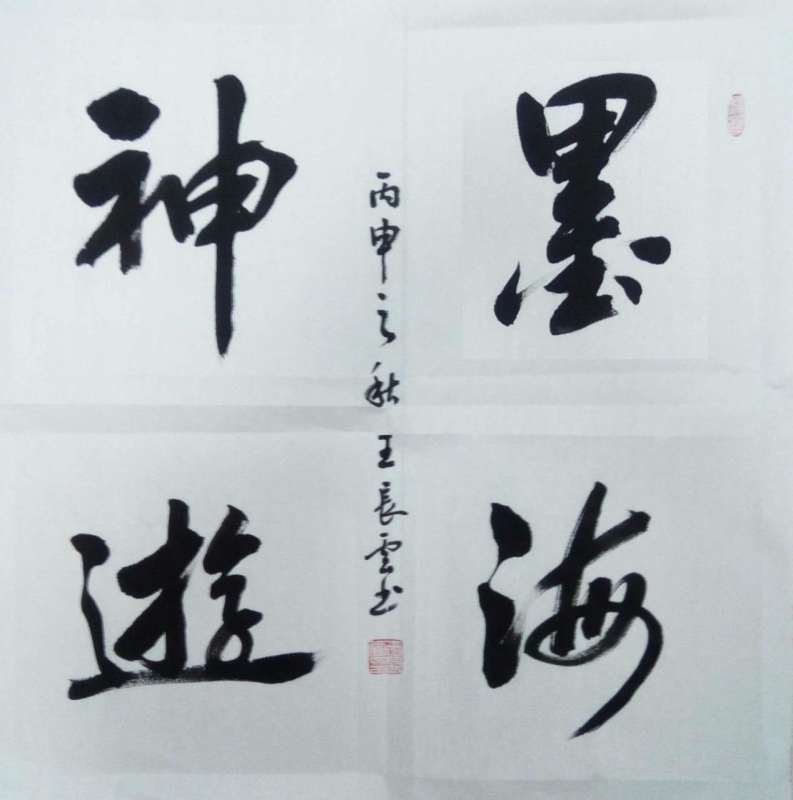 墨海
神遊
丙申之秋王長雲书